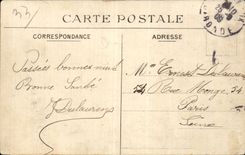 33
CARTE POSTALE
CORRESPONDANCE
ADRESSE
Passées bonnes nuit
Bonne Santé
J Dulaurens
Mr Ernest Dulaurens
54 Rue Monge 54
Paris
Seine
GIRONDE